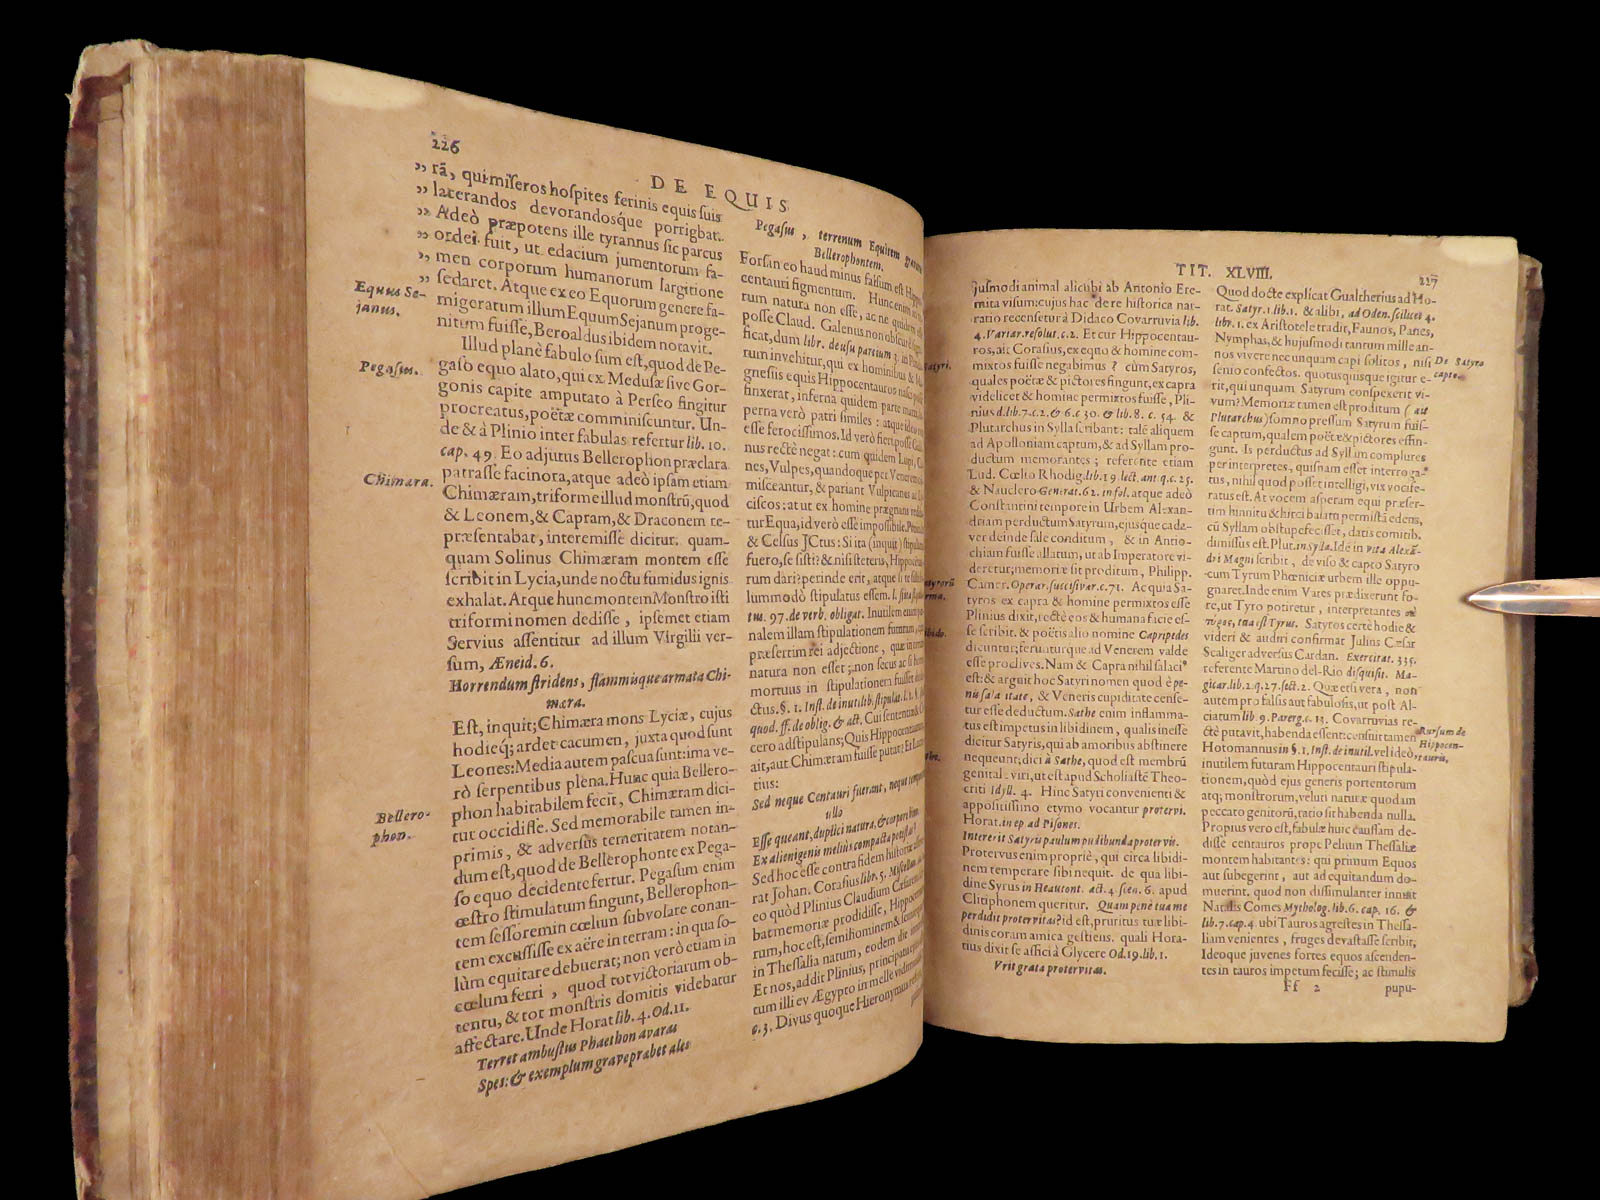 226
DE EQUIS
„ rã, qui miseros hospites ferinis equis suis
„ laterandos devorandosq́ue porrigbat.
„ Adeò præpotens ille tyrannus sic parcus
„ ordei fuit, ut edacium jumentorum fa-
„ men corporum humanorum largitione
„ sedaret. Atque ex eo Equorum genere fa-
migeratum illum Equum Sejanum proge-
nitum fuisse, Beroaldus ibidem notavit.
Equus Se-
janus.
Illud planè fabulosum est, quod de Pe-
gaso equo alato, qui ex Medusæ sive Gor-
gonis capite amputato à Perseo fingitur
procreatus, poëtæ comminiscuntur. Un-
de & à Plinio inter fabulas refertur lib. 10.
cap. 49. Eo adjutus Bellerophon præclara
patrasse facinora, atque adeò ipsam etiam
Chimæram, triforme illud monstrũ, quod
& Leonem, & Capram, & Draconem re-
præsentabat, interemisse dicitur. quam-
quam Solinus Chimæram montem esse
scribit in Lycia, unde noctu fumidus ignis
exhalat. Atque hunc montem Monstro isti
triformi nomen dedisse, ipsemet etiam
Servius assentitur ad illum Virgilii ver-
sum, Æneid. 6.
Pegasus.
Chimæra.
Horrendum stridens, flammisque armata Chi-
mæra.
Est, inquit; Chimæra mons Lyciæ, cujus
hodieq́; ardet cacumen, juxta quod sunt
Leones: Media autem pascua sunt: ima ve-
rò serpentibus plena. Hunc quia Bellero-
phon habitabilem fecit, Chimæram dici-
tur occidisse. Sed memorabile tamen in-
primis, & adversùs temeritatem notan-
dum est, quod de Bellerophonte ex Pega-
so equo decidente fertur. Pegasum enim
œstro stimulatum fingunt, Bellerophon-
tem sessorem in cœlum subvolare conan-
tem excussisse ex aëre in terram: in qua so-
lùm equitare debuerat; non verò etiam in
cœlum ferri, quod tot victoriarum ob-
tentu, & tot monstris domitis videbatur
affectare. Unde Horat lib. 4. Od. 11.
Bellero-
phon.
Terret ambustus Phaethon avaras
Spes: & exemplum grave præbet ales
Pegasus, terrenum Equitem
Bellerophontem.
Forsan eo haud minus falsum est
centauri figmentum.
rum natura non esse, ac ne quidem
posse Claud. Galenus non obscurè
ficat, dum libr. de usu partium 3.
rum invehitur, qui ex hominibus &
gnesiis equis Hippocentauros nasci
finxerat, inferna quidem parte
perna verò patri similes: atque
esse ferocissimos. Id verò fieri posse
nus rectè negat: cum quidem Lupi,
nes, Vulpes, quandoque per
misceantur, & pariant Vulpicanes
ciscos: at ut ex homine prægnans
tur Equa, id verò esse impossibile.
& Celsus JCtus: Si ita (inquit)
fuero, se sisti? & nisi steteris,
rum dari? perinde erit, atque si te
lummodò stipulatus essem.
tus. 97. de verb. obligat. Inutilem enim
nalem illam stipulationem futuram,
præsertim rei adjectione, quæ in
natura non esset; non secus ac si
mortuus in stipulationem
ctus. §. 1. Inst. de inutilib. stipulat. l. 1. §.
quod. ff. de oblig. & act. Cui sententiæ
cero adstipulans; Quis Hippocentaurum
ait, aut Chimæram fuisse putat?
tius:
Sed neque Centauri fuerunt, neque
ullo
Esse queant, duplici natura, & corpore
Ex alienigenis
Sed hoc esse contra fidem historiæ
rat Johan. Corasius libr. 5.
eo quòd Plinius Claudium Cæsarem
bat memoriæ prodidisse,
rum, hoc est, semihominem &
in Thessalia natum, eodem die
Et nos, addit Plinius, principatu
tum illi ex Ægypto in melle vidimus
c. 3. Divus quoque Hieronymus
TIT. XLVIII.
227
jusmodi animal alicubi ab Antonio Ere-
mita visum: cujus hac de re historica nar-
ratio recensetur à Didaco Covarruvia lib.
4. Variar. resolut. c. 2. Et cur Hippocentau-
ros, ait Corasius, ex equo & homine com-
mixtos fuisse negabimus? cùm Satyros,
quales poëtæ & pictores fingunt, ex capra
videlicet & homine permixtos fuisse, Pli-
nius d. lib. 7. c. 2. & 6. c. 30. & lib. 8. c. 54. &
Plutarchus in Sylla scribant: talé aliquem
ad Apolloniam captum, & ad Syllam pro-
ductum memorantes; referente etiam
Lud. Cœlio Rhodig. lib. 19. lect. ant. q. c. 25.
& Nauclero Generat. 62. in fol. atque adeò
Constantini tempore in Urbem Alexan-
driam perductum Satyrum, ejusque cada-
ver deinde sale conditum, & in Antio-
chiam fuisse allatum, ut ab Imperatore vi-
deretur; memoriæ sit proditum, Philipp.
Camer. Operar. succisivar. c. 71. Ac quia Sa-
tyros ex capra & homine permixtos esse
Plinius dixit, rectè eos & humana facie es-
se scribit. & poëtis alio nomine Capripedes
dicuntur; feruntur que ad Venerem valde
esse proclives. Nam & Capra nihil salaci⁹
est: & arguit hoc Satyri nomen quod è pe-
nis salacitate, & Veneris cupiditate cense-
tur esse deductum. Sathe enim inflamma-
tus est impetus in libidinem, qualis inesse
dicitur Satyris, qui ab amoribus abstinere
nequeunt; dici à Sathe, quod est membrũ
genitale viri, ut est apud Scholiastẽ Theo-
criti Idyll. 4. Hinc Satyri convenienti &
appositissimo etymo vocantur protervi.
Horat. in ep. ad Pisones.
Intererit Satyris paulum pudibunda protervis.
Protervus enim propriè, qui circa libidi-
nem temperare sibi nequit. de qua libi-
dine Syrus in Heautont. act. 4. scen. 6. apud
Clitiphonem queritur. Quam penè tua me
perdidit protervitas? id est, pruritus tuæ libi-
dinis coram amica gestiens. quali Hora-
tius dixit se affici à Glycere Od. 19. lib. 1.
Vrit grata protervitas.
Quod docte explicat Gualcherius ad Ho-
rat. Satyr. 1. lib. 1. & alibi, ad Oden. scilicet 4.
libr. 1. ex Aristotele tradit, Faunos, Panes,
Nymphas, & hujusmodi tantum mille an-
nos vivere nec unquam capi solitos, nisi
senio confectos. quotusquisque igitur e-
rit, qui unquam Satyrum conspexerit vi-
vum? Memoriæ tamen est proditum (ait
Plutarchus) somno pressum Satyrum fuis-
se captum, qualem poëtæ & pictores effin-
gunt. Is perductus ad Syllam complures
per interpretes, quisnam esset interroga-
tus, nihil quod posset intelligi, vix vocife-
ratus est. At vocem asperam equi præser-
tim hinnitu & hirci balatu permistã edens,
cũ Syllam obstupefecisset, datis comitib.
dimissus est. Plut. in Sylla. Idē in vita Alexã-
dri Magni scribit, de viso & capto Satyro
cum Tyrum Phœniciæ urbem ille oppu-
gnaret. Inde enim Vates prædixerunt fo-
re, ut Tyro potiretur, interpretantes σὰ
τύρος, tua est Tyrus. Satyros certè hodie &
videri & audiri confirmat Julius Cæsar
Scaliger adversus Cardan. Exercitat. 335.
referente Martino del-Rio disquisit. Ma-
gicar. lib. 2. q. 27. sect. 2. Quæ etsi vera, non
autem pro falsis aut fabulosis, ut post Al-
ciatum lib. 9. Parerg. c. 13. Covarruvias re-
ctè putavit, habenda essent: censuit tamen
Hotomannus in §. 1. Inst. de inutil. vel ideò,
inutilem futuram Hippocentauri stipula-
tionem, quòd ejus generis portentorum
atq; monstrorum, veluti naturæ quodam
peccato genitorũ, ratio sit habenda nulla.
Propius vero est, fabulæ huic caussam de-
disse centauros prope Pelium Thessaliæ
montem habitantes: qui primum Equos
aut subegerint, aut ad equitandum do-
muerint. quod non dissimulanter innuit
Natalis Comes Mytholog. lib. 6. cap. 16. &
lib. 7. cap. 4. ubi Tauros agrestes in Thessa-
liam venientes, fruges devastasse scribit,
Ideoque juvenes fortes equos ascenden-
tes in tauros impetum fecisse; ac stimulis
De Satyro
capto.
Rursum de
Hippocen-
tauris.
Ff 2
pupu-